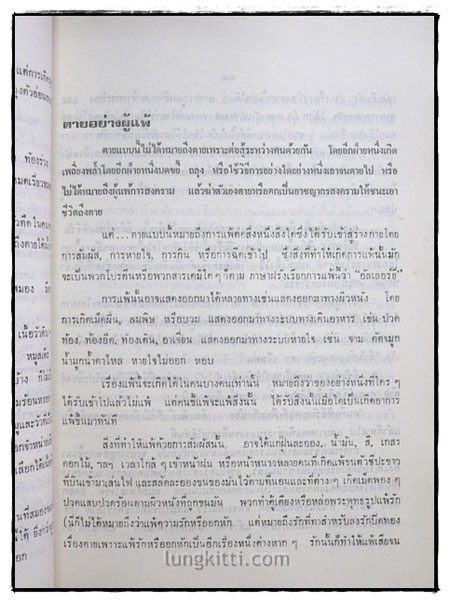 ตายอย่างผู้แพ้
ตายแบบนี้ไม่ได้หมายถึงตายเพราะต่อสู้ระหว่างคนด้วยกัน โดยอีกฝ่ายหนึ่งเกิด
เพลี่ยงพล้ำโดยอีกฝ่ายหนึ่งบดขยี้ ถลุง หรือใช้วิธีการอย่างใดอย่างหนึ่งเอาจนตายไป หรือ
ไม่ได้หมายถึงผู้แพ้การสงคราม แล้วฆ่าตัวเองตายหรือตกเป็นอาชญากรสงครามให้ชนะเอา
ชีวิตถึงตาย
แต่...ตายแบบนี้หมายถึงการแพ้ต่อสิ่งหนึ่งสิ่งใดซึ่งได้รับเข้าสู่ร่างกายโดย
การสัมผัส, การหายใจ, การกิน หรือการฉีดเข้าไป ซึ่งสิ่งที่ทำให้เกิดการแพ้นั้นมัก
จะเป็นพวกโปรตีนหรือพวกสารเคมีใด ๆ ก็ตาม ภาษาฝรั่งเรียกการแพ้นี้ว่า “อัลเลอร์ยี่”
การแพ้นั้นอาจแสดงออกมาได้หลายทางเช่นแสดงออกมาทางผิวหนัง โดย
การเกิดเม็ดผื่น, ลมพิษ หรือบวม แสดงออกมาทางระบบทางเดินอาหาร เช่น ปวด
ท้อง, ท้องอืด, ท้องเดิน, อาเจียน แสดงออกมาทางระบบหายใจ เช่น จาม คัดจมูก
น้ำมูกน้ำตาไหล หายใจไม่ออก หอบ
เรื่องแพ้นี้จะเกิดได้ในคนบางคนเท่านั้น หมายถึงว่าของอย่างหนึ่งที่ใคร ๆ
ได้รับเข้าไปแล้วไม่แพ้ แต่คนขี้แพ้จะแพ้สิ่งนั้น ได้รับสิ่งนั้นเมื่อใดเป็นเกิดอาการ
แพ้ขึ้นมาทันที
สิ่งที่ทำให้แพ้ด้วยการสัมผัสนั้น อาจได้แก่ฝุ่นละออง, น้ำมัน, สี, เกสร
ดอกไม้, ฯลฯ เวลาใกล้ ๆ เข้าหน้าฝน หรือหน้าหนาวหลายคนที่เกิดแพ้ขนตัวชีปะขาว
ที่บินเข้ามาเล่นไฟ และสลัดละอองขนของมันไว้ตามที่นอนและที่ต่าง ๆ เกิดเม็ดพอง ๆ
ปวดแสบปวดร้อนตามผิวหนังที่ถูกขนมัน พวกทำตู้เตียงหรือหล่อพระพุทธรูปแพ้รัก
(นี่ก็ไม่ได้หมายถึงว่าแพ้ความรักหรืออกหัก แต่หมายถึงรักที่ทาสำหรับลงรักปิดทอง
เรื่องตายเพราะแพ้รักหรืออกหักเป็นอีกเรื่องหนึ่งต่างหาก ๆ รักนั้นก็ทำให้แพ้เสียจน
lungkitti.com